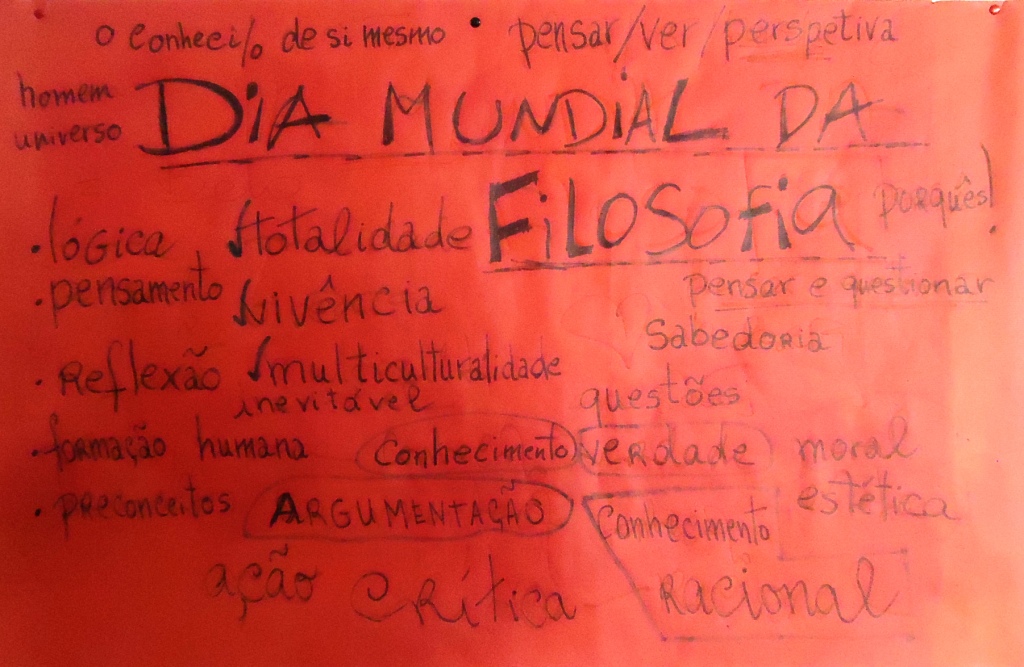 o conheci/o de si mesmo • pensar/ver/perspetiva
homem
universo
DIA MUNDIAL DA
FiLOSOfia
porquês!
• lógica
√totalidade
• pensamento
√Vivência
Pensar e questionar
Sabedoria
• Reflexão
√multiculturalidade
inevitável
questões
• formação humana
Conhecimento
verdade
moral
estética
• preconceitos
ARGUMENTAÇÃO
Conhecimento
Racional
ação
Crítica